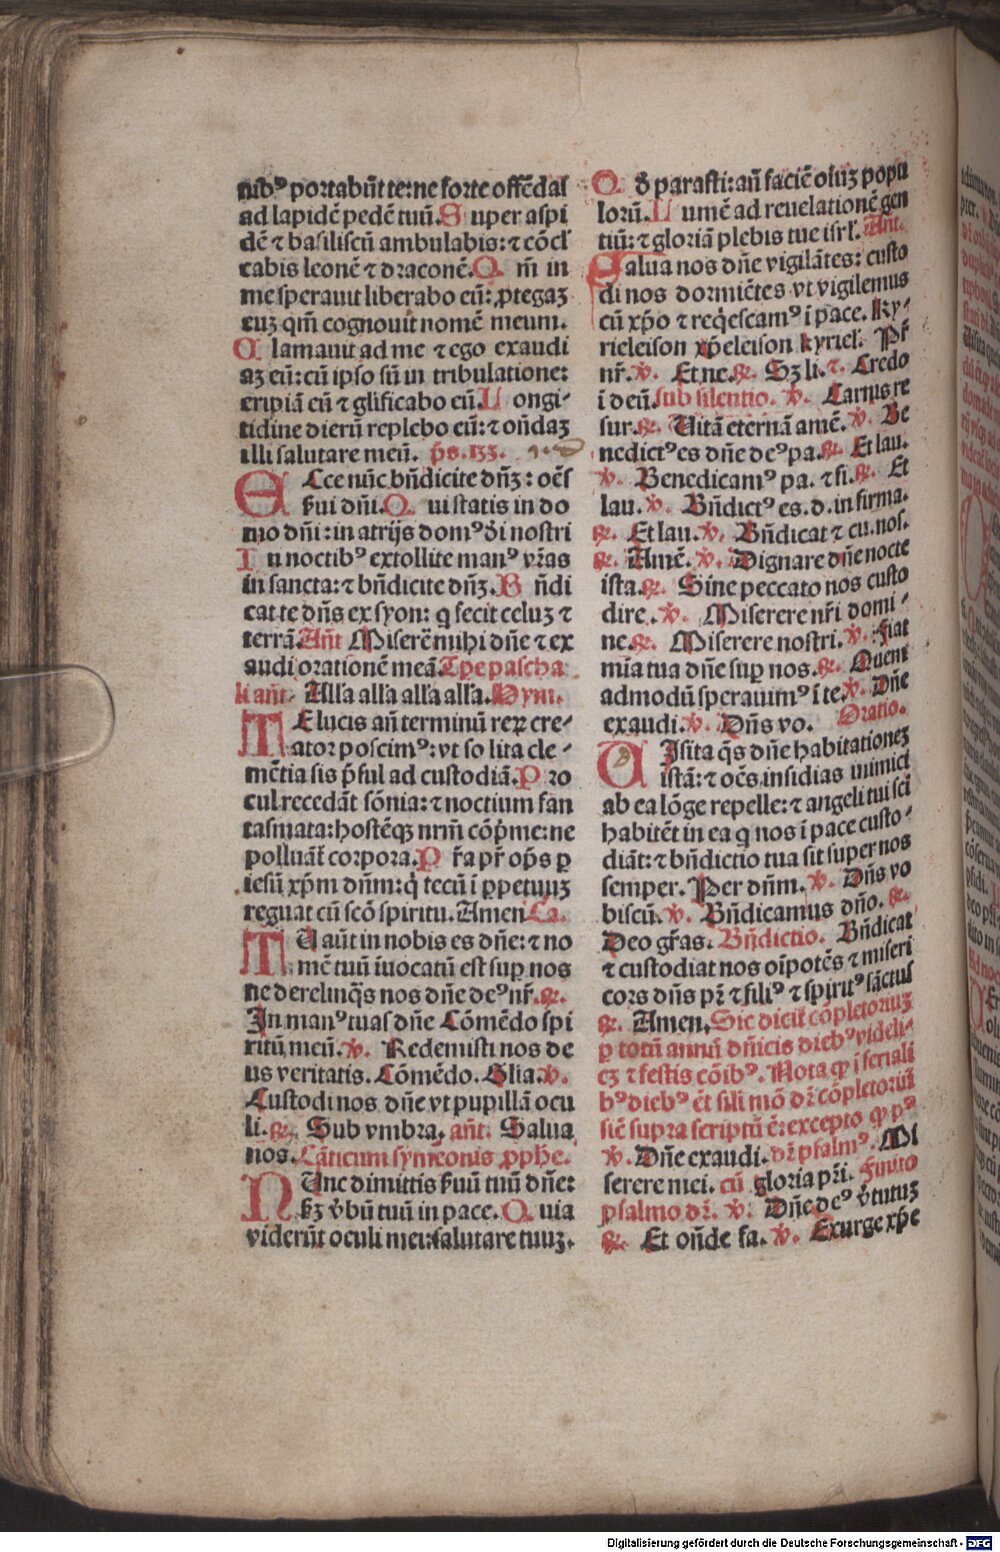 nibꝰ portabũt te: ne forte offẽdas
ad lapidẽ pedẽ tuũ. Super aspi
dẽ ⁊ basiliscũ ambulabis: ⁊ cõcl̓
cabis leonẽ ⁊ draconẽ. Qm̃ in
me sperauit liberabo eũ: ꝓtegaꝫ
euꝫ qm̃ cognouit nomẽ meum.
Clamauit ad me ⁊ ego exaudi
aꝫ eũ: cũ ipso sũ in tribulatione:
eripiã eũ ⁊ glificabo eũ. Longi-
tidine dierũ replebo eũ: ⁊ oñdaꝫ
illi salutare meũ. p̃s. 133.
ECce nũc bñdicite dñꝫ: oẽs
s̃ui dñi. Qui statis in do
mo dñi: in atrijs domꝰ d̓i nostri
In noctibꝰ extollite manꝰ vr̃as
in sancta: ⁊ bñdicite dñꝫ. Bñdi
cat te dñs ex syon: q̓ fecit celuꝫ ⁊
terrã. Añt Miserẽ mihi dñe ⁊ ex
audi orationẽ meã. Tꝑe pascha
li añt. All'a all'a all'a all'a. Hym.
TE lucis añ terminũ reꝝ cre-
ator poscimꝰ: vt so lita cle-
mẽtia sis p̃ful ad custodiã. Pro
cul recedãt sõnia: ⁊ noctium fan
tasmata: hostẽqꝫ nrm̃ cõp̃me: ne
polluãt̃ corpora. Pr̃a pr̃ op̃s ꝑ
iesũ xp̃m dñm: q̓ tecũ i ꝑpetuuꝫ
regnat cũ scõ spiritu. Amen Ca.
TU aũt in nobis es dñe: ⁊ no
mẽ tuũ iuocatũ est suꝑ nos
ne derelinq̃s nos dñe deꝰ nr̃. ꝶ.
In manꝰ tuas dñe Cõmẽdo spi
ritũ meũ. ℣. Redemisti nos de
us veritatis. Cõmẽdo. Glia. ℣.
Custodi nos dñe vt pupillã ocu
li. ꝶ. Sub vmbra. añt. Salua
nos. Cãticum symeonis ꝓphe.
NUnc dimittis s̃uũ tuũ dñe:
s̃ꝫ v̓bũ tuũ in pace. Quia
viderũt oculi mei: salutare tuuꝫ.
Qd̓ parasti: añ faciẽ oĩuꝫ popu
lorũ. Lumẽ ad reuelationẽ gen
tiũ: ⁊ gloriã plebis tue isrl̓. Ant.
Salua nos dñe vigilãtes: custo
di nos dormiẽtes vt vigilemus
cũ xp̃o ⁊ req̓escamꝰ i pace. Ky-
rieleison xp̃eleison kyriel̓. Pr̃
nr̃. ℣. Et ne. ꝶ. Sꝫ li. ⁊. Credo
i deũ. sub silentio. ℣. Carnis re
sur. ꝶ. Uitã eternã amẽ. ℣. Be
nedictꝰ es dñe deꝰ pa. ꝶ. Et lau.
℣. Benedicamꝰ pa. ⁊ fi. ꝶ. Et
lau. ℣. Bñdictꝰ es. d. in firma.
ꝶ. Et lau. ℣. Bñdicat ⁊ cu. nos.
ꝶ. Amẽ. ℣. Dignare dñe nocte
ista. ꝶ. Sine peccato nos custo
dire. ℣. Miserere nr̃i domi-
ne. ꝶ. Miserere nostri. ℣. Fiat
mia tua dñe suꝑ nos. ꝶ. Quem
admodũ sperauimꝰ i te. ℣. Dñe
exaudi. ℣. Dñs vo. Oratio.
UIsita q̃s dñe habitationeꝫ
istã: ⁊ oẽs insidias inimici
ab ea lõge repelle: ⁊ angeli tui sci
habitẽt in ea q̓ nos i pace custo-
diãt: ⁊ bñdictio tua sit super nos
semper. Per dñm. ℣. Dñs vo
biscũ. ℣. Bñdicamus dño. ꝶ.
Deo gr̃as. Bñdictio. Bñdicat
⁊ custodiat nos oĩpotẽs ⁊ miseri
cors dñs pr̃ ⁊ filiꝰ ⁊ spiritꝰ sãctus
ꝶ. Amen. Sic dicit̃ cõpletoriuꝫ
ꝑ totũ annũ dñicis diebꝰ videli-
cꝫ ⁊ festis cõibꝰ. Nota ꝙ i feriali
bꝰ diebꝰ ẽt sili mõ dr̃ cõpletoriũ
sic̃ supra scriptũ ẽ: excepto ꝙ pꝰ
℣. Dñe exaudi. dr̃ psalmꝰ. Mi
serere mei. cũ gloria pr̃i. Finito
psalmo dr̃. ℣. Dñe deꝰ v̓tutuꝫ
ꝶ. Et oñde fa. ℣. Exurge xp̃e
Digitalisierung gefördert durch die Deutsche Forschungsgemeinschaft - DFG